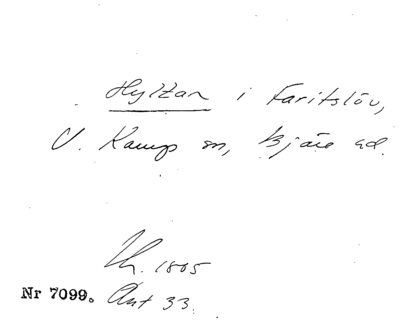 Hyltan i Faritslöv,
V. Karup sn, Bjäre hd.
Uh. 1805
Nr 7099. Ant 33.